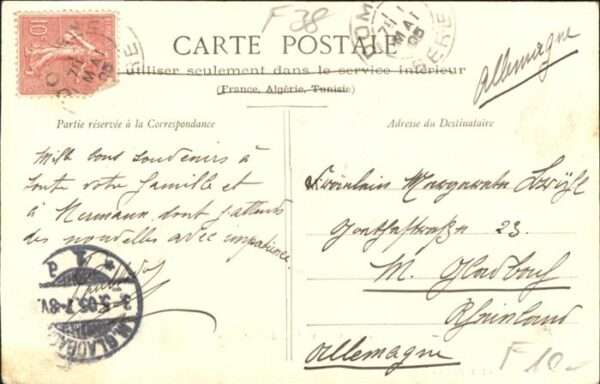 F38
10
DOM
7E 1
MAI
05
ISERE
CARTE POSTALE
utiliser seulement dans le service intérieur
(France, Algérie, Tunisie)
Allemagne
Partie réservée à la Correspondance
Mille bons souvenirs à
toute votre famille et
à Hermann dont j'attends
des nouvelles avec impatience.
3-5.05.7-8V.
M.GLADBACH
Adresse du Destinataire
Fräulein Margarete
Goethestraße 23.
M. Gladbach
Rheinland
Allemagne
F10-